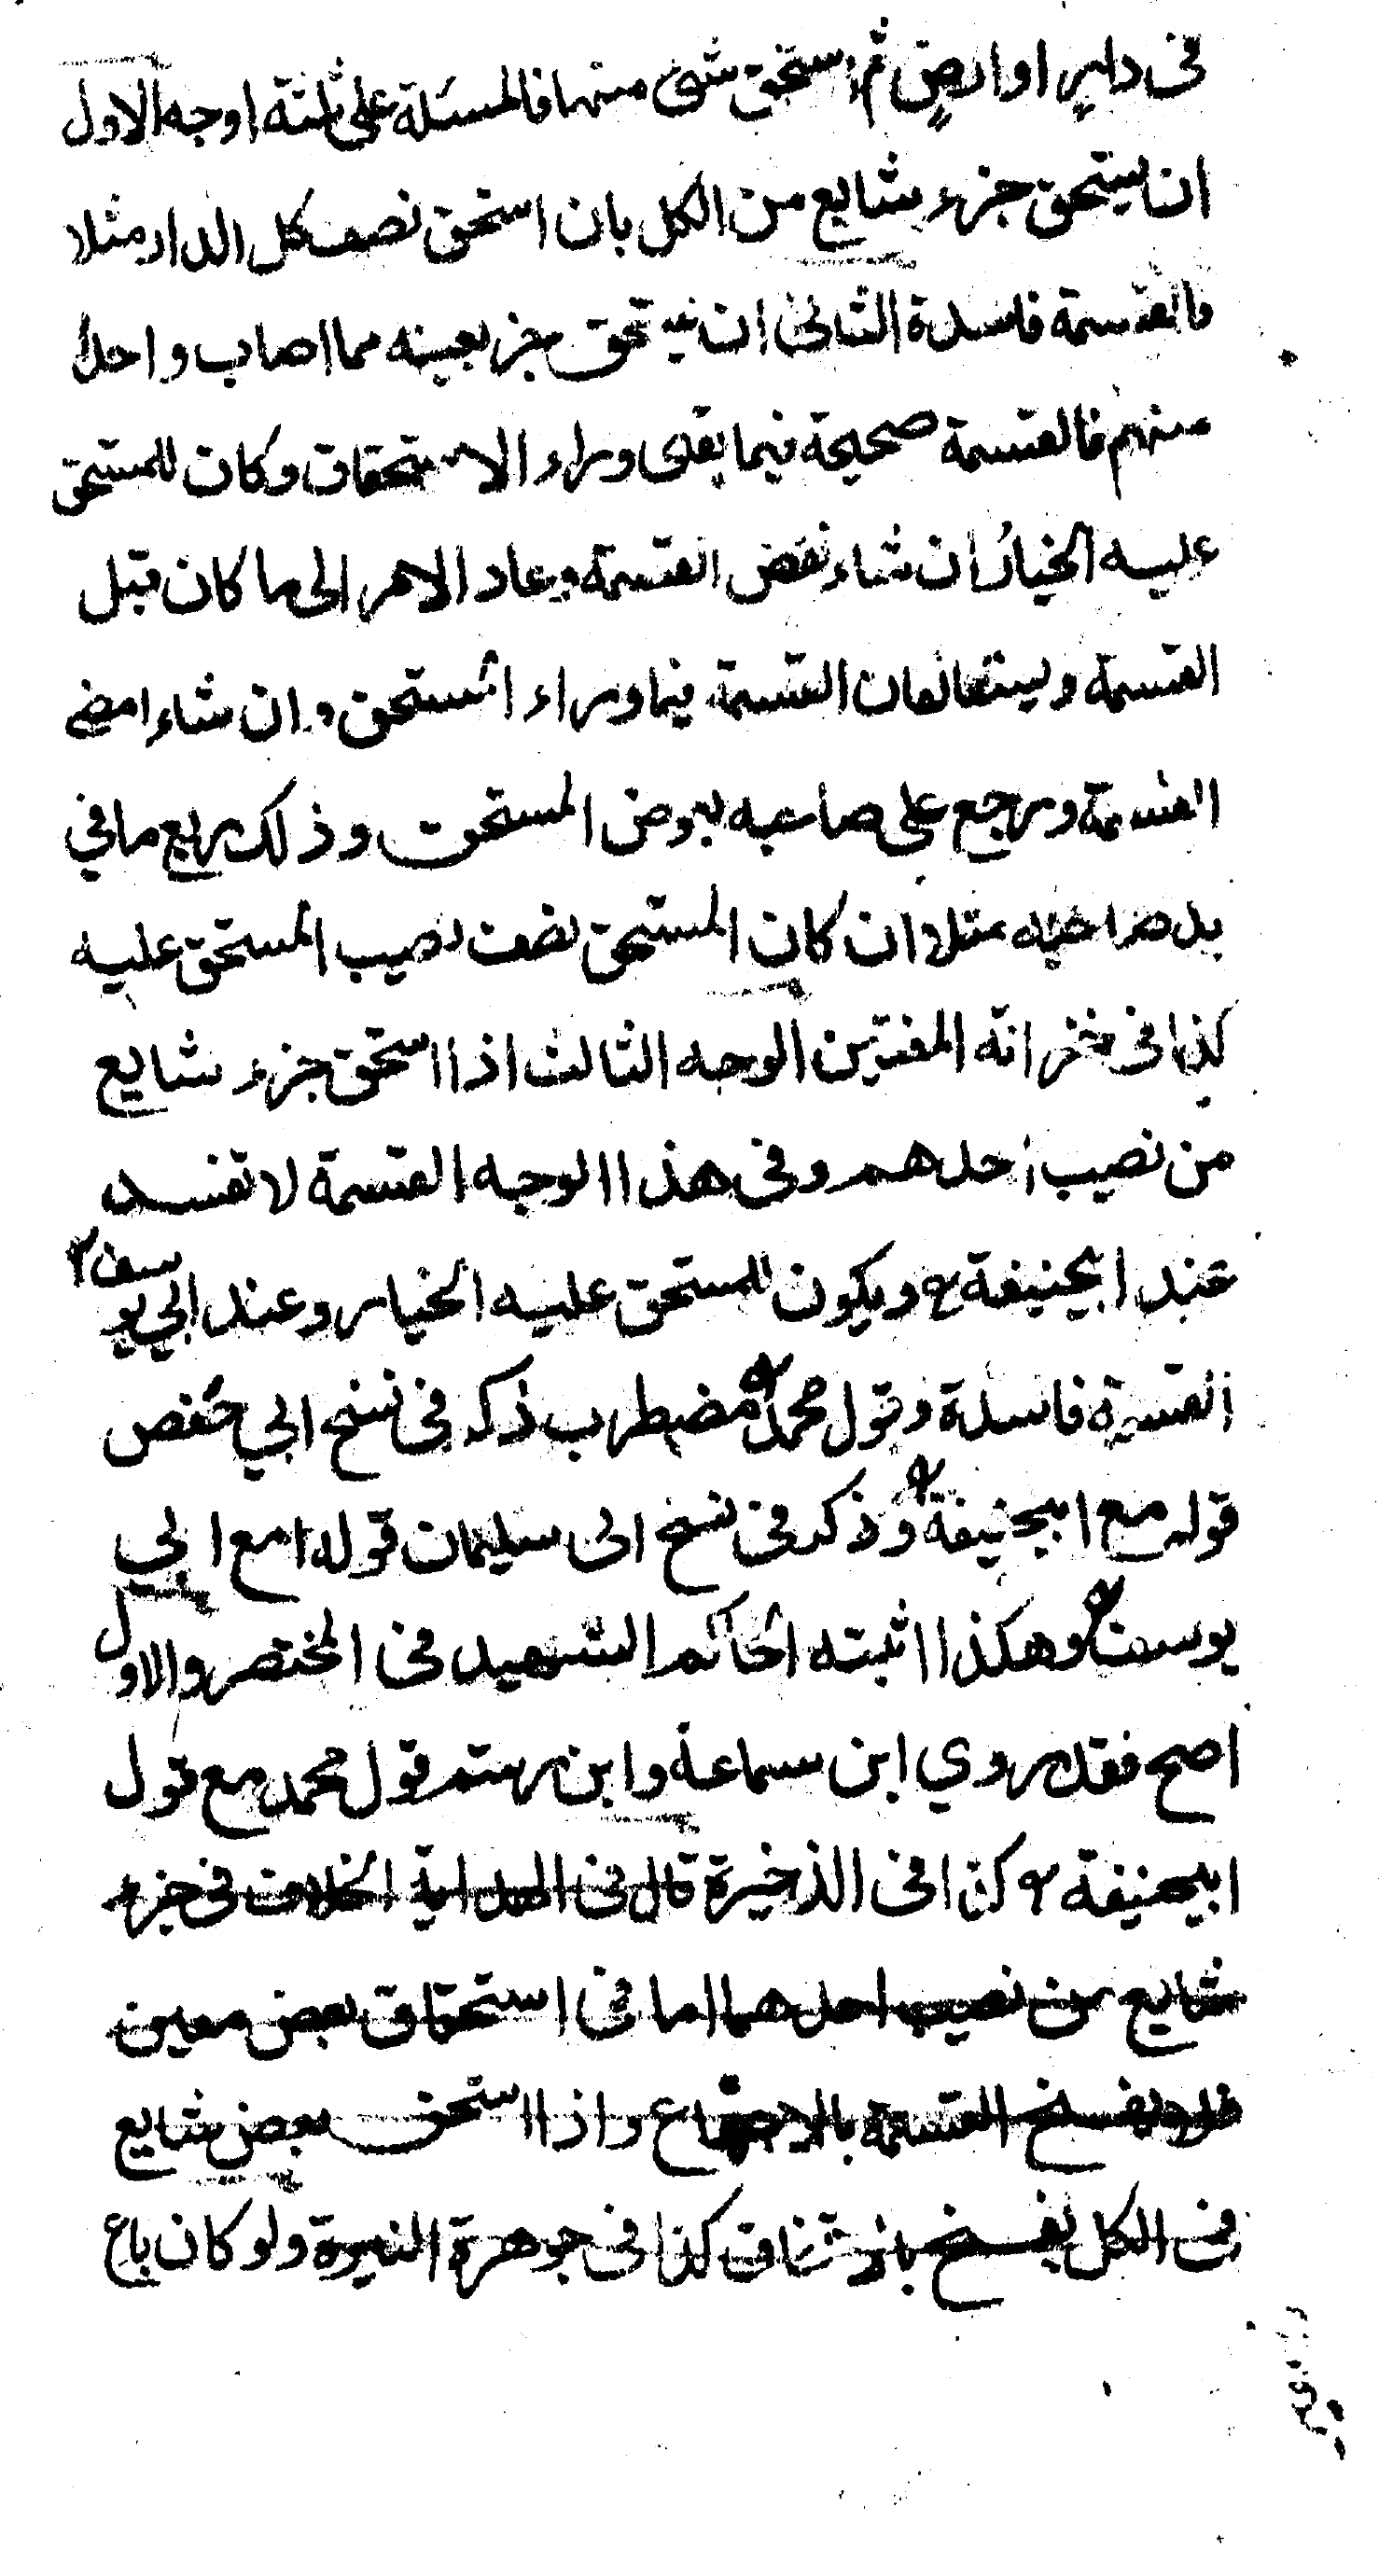 فى دار او ارض ثم استحق شئ منها فالمسئلة على ثلثة اوجه الاول
ان يستحق جزء شايع من الكل بان استحق نصف كل الدار مثلا
فالقسمة فاسدة الثانى ان يستحق جزء بعينه مما اصاب واحدا
منهم فالقسمة صحيحة فيما بقى وراء الاستحقاق وكان للمستحق
عليه الخيار ان شاء نقض القسمة وعاد الامر الى ما كان قبل
القسمة ويستقانفان القسمة فيما وراء المستحق وان شاء امضى
القسمة ورجع على صاحبه بعوض المستحق وذلك ربع ما في
يد صاحبه مثلا ان كان المستحق نصف نصيب المستحق عليه
كذا فى خزانة المفتين الوجه الثالث اذا استحق جزء شايع
من نصيب احدهم وفى هذا الوجه القسمة لا تفسد
عند ابيحنيفة رح ويكون للمستحق عليه الخيار وعند ابي يوسف رح
القسمة فاسدة وقول محمد رح مضطرب ذكر فى نسخ ابي حفص
قوله مع ابيحنيفة رح وذكر فى نسخ ابى سليمان قوله مع ابي
يوسف رح وهكذا اثبته الحاكم الشهيد فى المختصر والاول
اصح فقد روي ابن سماعة وابن رستم قول محمد مع قول
ابيحنيفة رح كذا فى الذخيرة قال فى الهداية الخلاف فى جزء
شايع من نصيب احدهما اما فى استحقاق بعض معين
فلا يفسخ القسمة بالاجماع واذا استحق بعض شايع
فى الكل يفسخ بالاتفاق كذا فى جوهرة النيرة ولو كان باع